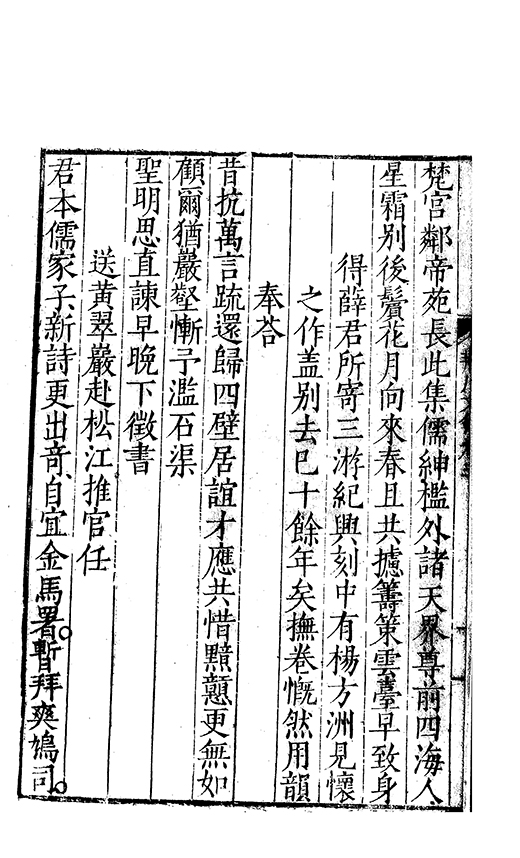 梵宫鄰帝苑長此集儒紳檻外諸天界尊前四海人
星霜别後鬢花月向來春且共攄籌策雲臺早致身
得薛君所寄三游紀興刻中有楊方洲見懷
之作盖别去已十餘年矣撫卷慨然用韻
奉荅
昔抗萬言疏還歸四壁居誼才應共惜黯戇更無如
顧爾猶巖壑慚予濫石渠
聖明思直諫早晚下徵書
送黄翠巖赴松江推官任
君本儒家子新詩更出竒自宜金馬署暫拜爽鳩司